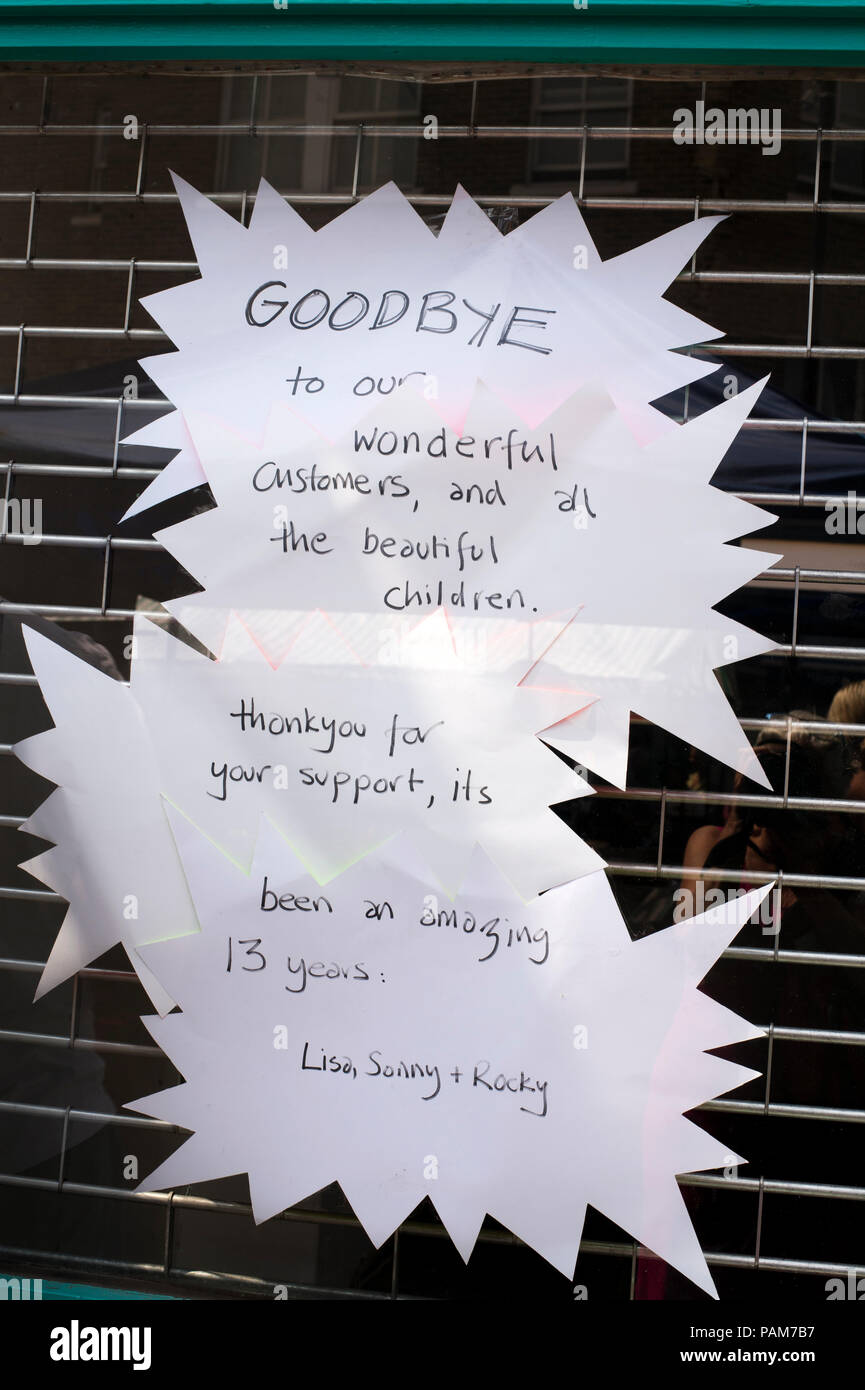 GOODBYE
to our
wonderful
customers, and all
the beautiful
children.
thankyou for
your support, its
been an amazing
13 years.
Lisa, Sonny + Rocky
a
alamy
Image ID: PAM7B7
www.alamy.com